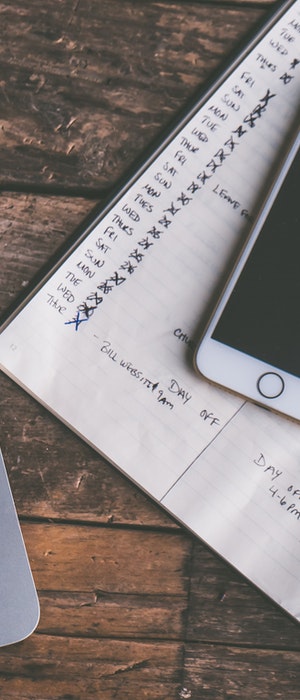 TUE
WED
THURS
FRI
SAT
SUN
MON
TUE
WED
THR
FRI
SAT
SUN
MON
TUES
WED
THURS
FRI
SAT
SUN
MON
TUE
WED
THUR
LEAVE
- BILL WEBSITE 9AM
DAY OFF
DAY OF
4-6PM